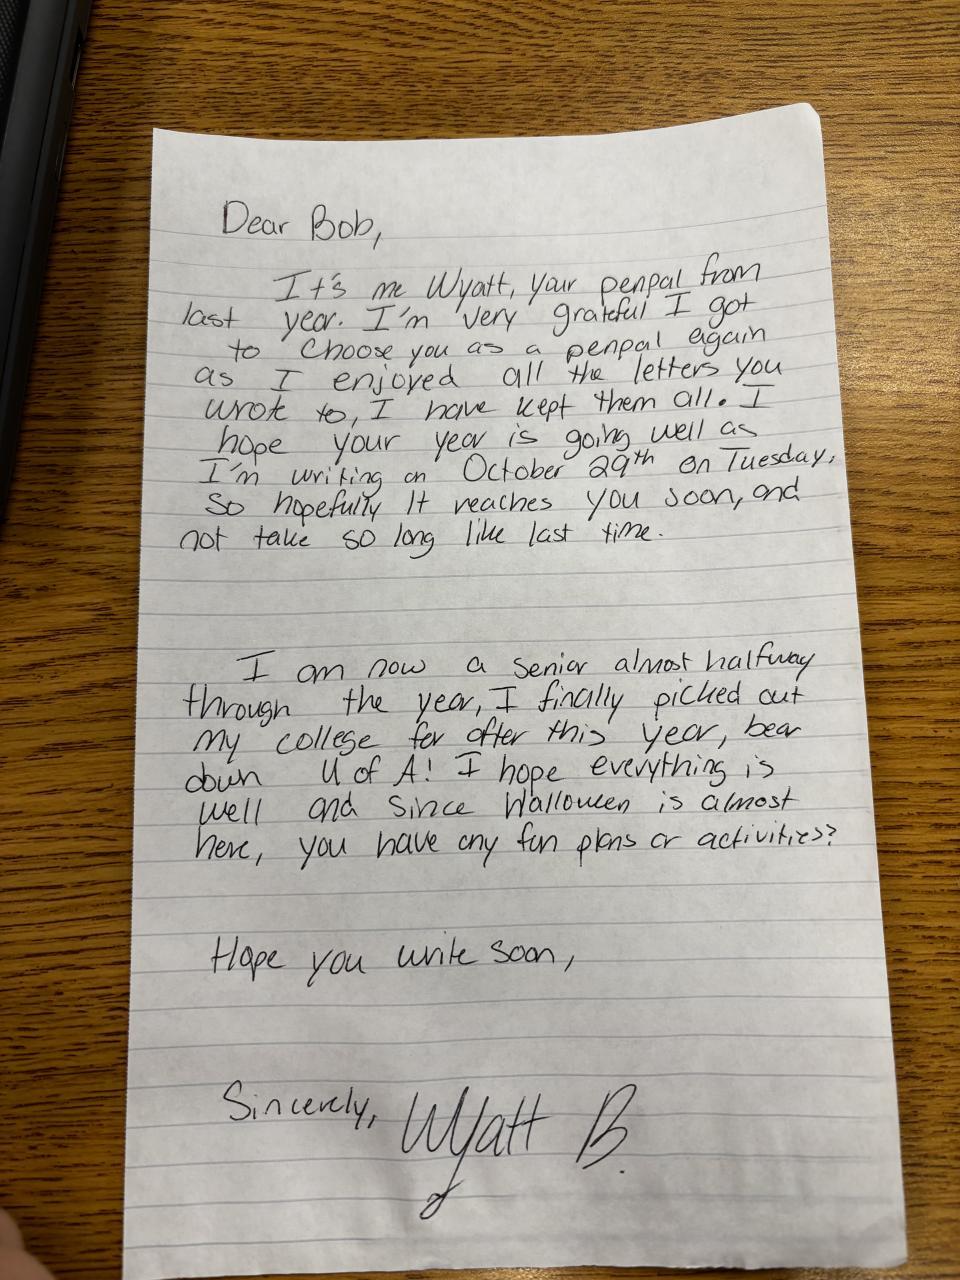 Dear Bob,
It's me Wyatt, your penpal from
last year. I'm very grateful I got
to choose you as a penpal again
as I enjoyed all the letters you
wrote to, I have kept them all. I
hope your year is going well as
I'm writing on October 29th on Tuesday,
so hopefully It reaches you soon, and
not take so long like last time.
I am now a senior almost halfway
through the year, I finally picked out
my college for after this year, bear
down U of A! I hope everything is
well and since Halloween is almost
here, you have any fun plans or activities?
Hope you write soon,
Sincerely, Wyatt B.